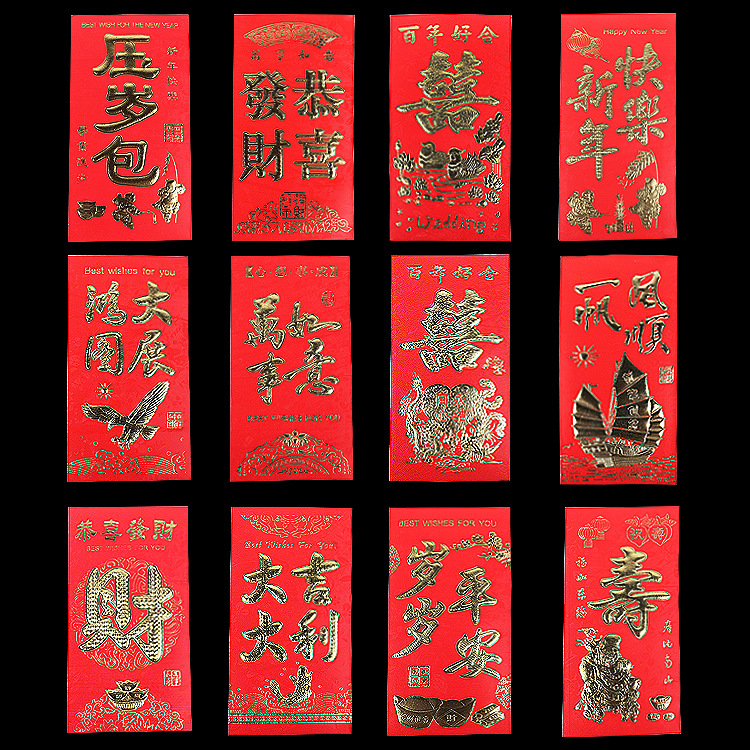 BEST WISH FOR THE NEW YEAR
压岁包
新年快樂
恭喜
發財
百年好合
囍
Wedding
Happy New Year
快樂
新年
Best wishes for you
大展
鴻圖
心想事成
如意
萬事
BEST WISHES FOR YOU
百年好合
囍
風順
一帆
恭喜發財
BEST WISHES FOR YOU
財
Best Wishes For You
大吉
大利
BEST WISHES FOR YOU
平安
岁岁
壽
福如东海
寿比南山